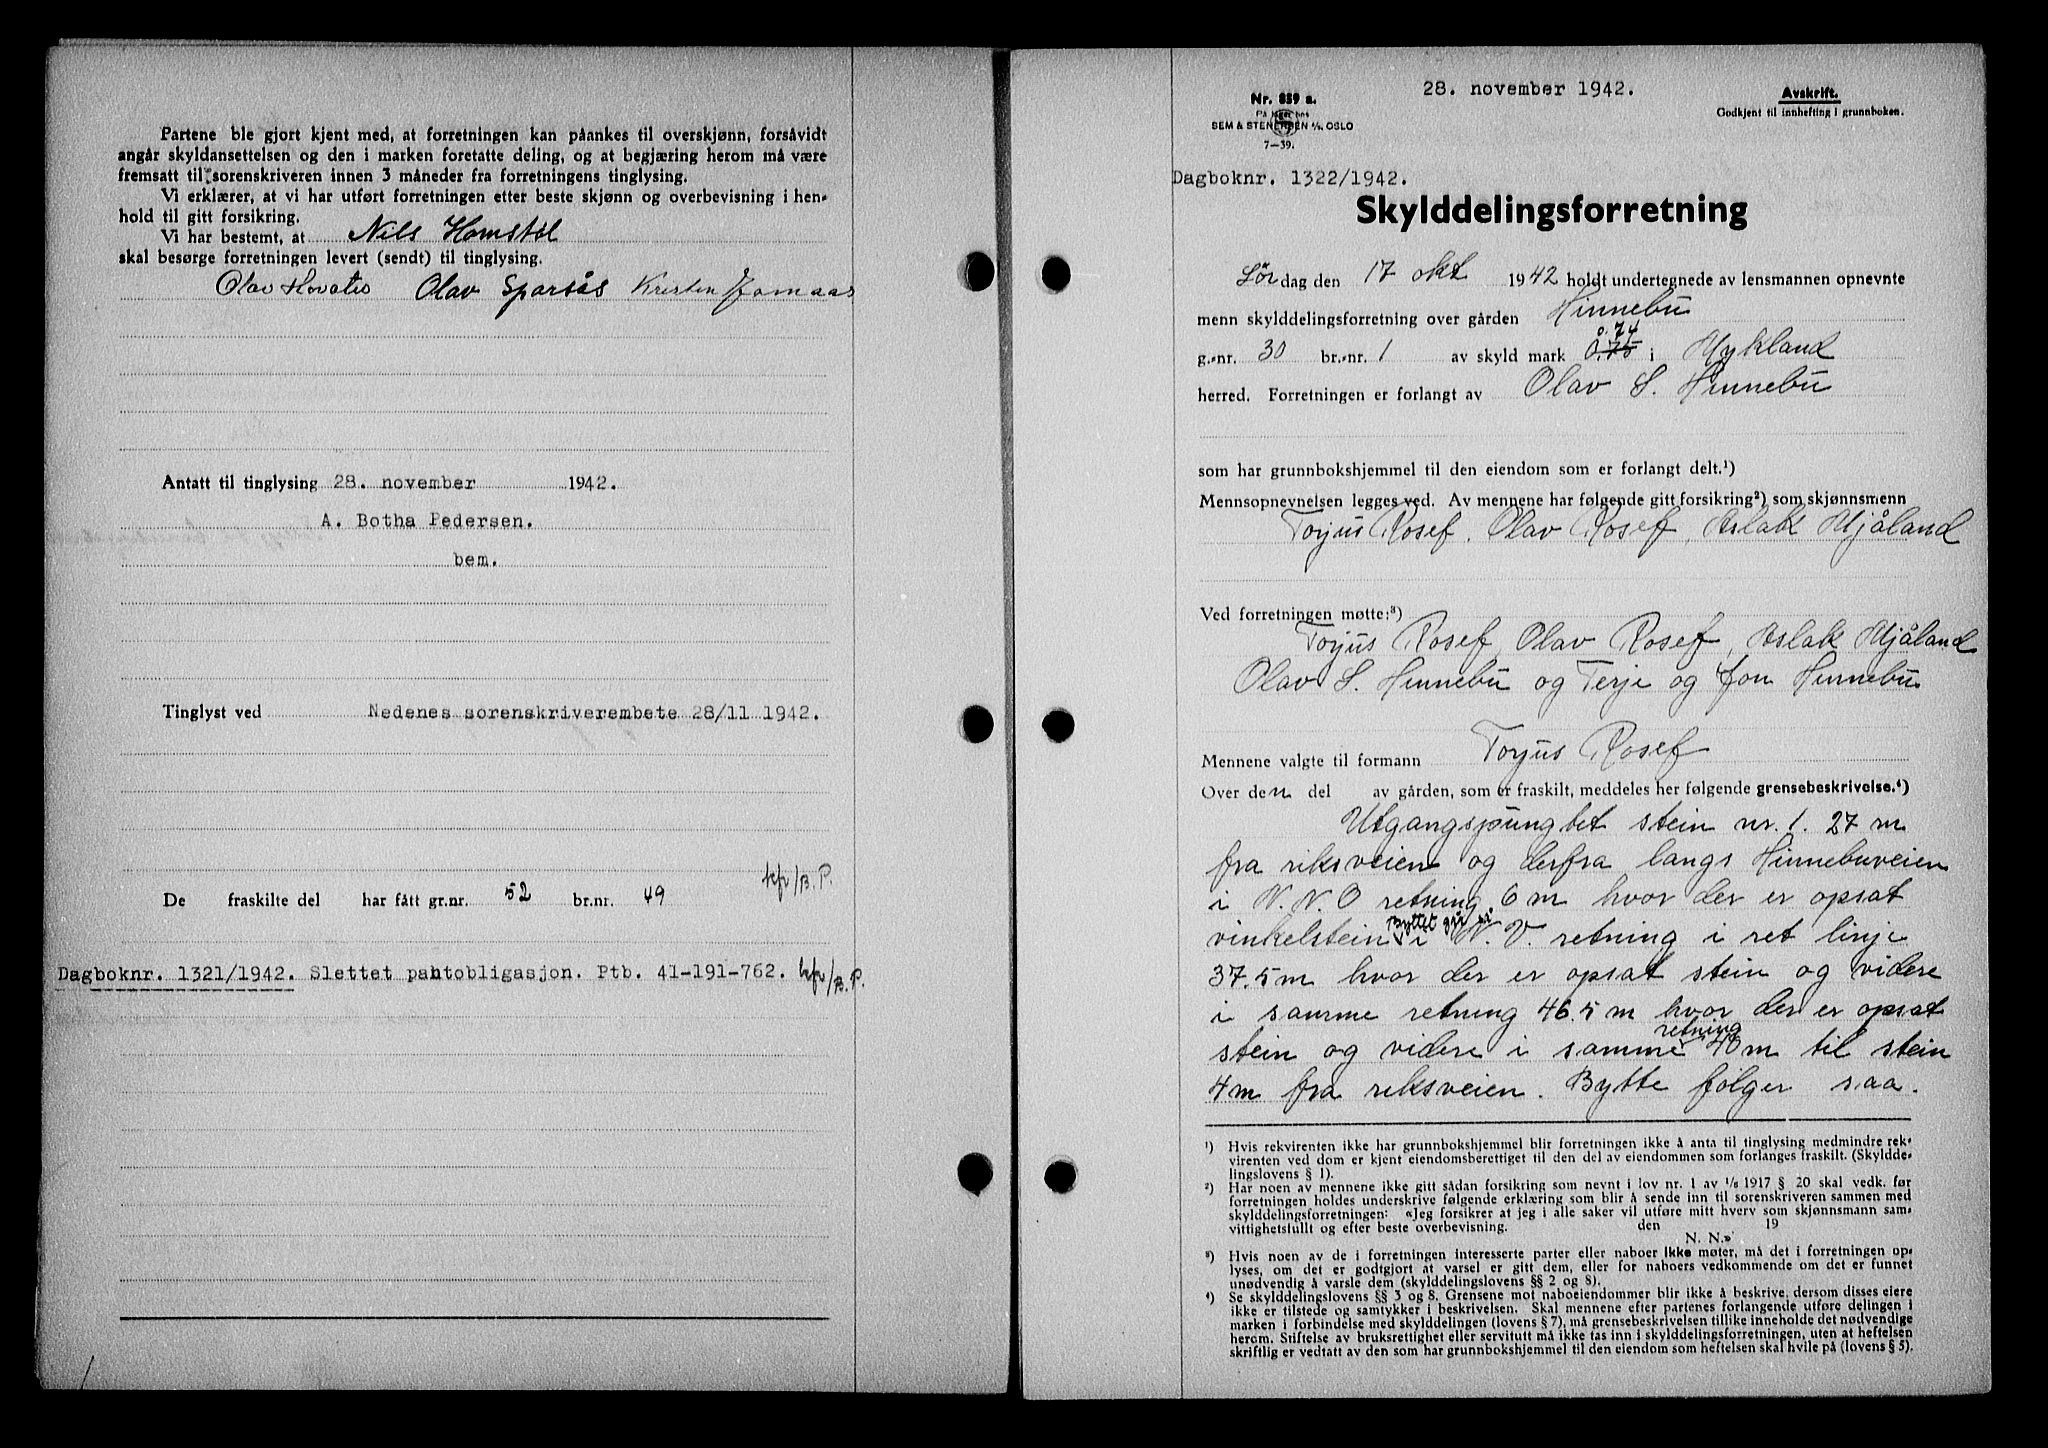 Partene ble gjort kjent med, at forretningen kan påankes til overskjønn, forsåvidt
angår skyldansettelsen og den i marken foretatte deling, og at begjæring herom må være
fremsatt til sorenskriveren innen 3 måneder fra forretningens tinglysing.
Vi erklærer, at vi har utført forretningen etter beste skjønn og overbevisning i hen-
hold til gitt forsikring.
Vi har bestemt, at Nils Homstøl
skal besørge forretningen levert (sendt) til tinglysing.
Olav Hovatis Olav Sparsås Kristen Jomaas
Antatt til tinglysing 28. november 1942.
A. Botha Pedersen.
bem.
Tinglyst ved Nedenes sorenskriverembete 28/11 1942.
De fraskilte del har fått gr.nr. 52 br.nr. 49 kfr/B.P.
Dagboknr. 1321/1942. Slettet pantobligasjon. Ptb. 41-191-762. kfr/B.P.
28. november 1942.
Nr. 889 a.
På lager hos
SEM & STENERSEN A/S, OSLO
7–39.
Avskrift.
Godkjent til innhefting i grunnboken.
Dagboknr. 1322/1942.
Skylddelingsforretning
Lördag den 17 okt 1942 holdt undertegnede av lensmannen opnevnte
menn skylddelingsforretning over gården Hinnebu
g.-nr. 30 br.-nr. 1 av skyld mark 0.75 0.74 i Mykland
herred. Forretningen er forlangt av Olav S. Hinnebu
som har grunnbokshjemmel til den eiendom som er forlangt delt.¹)
Mennsopnevnelsen legges ved. Av mennene har følgende gitt forsikring²) som skjønnsmenn
Torjus Rosef, Olav Rosef, Aslak Mjåland
Ved forretningen møtte:³)
Torjus Rosef, Olav Rosef, Aslak Mjåland
Olav S. Hinnebu og Terje og Jon Hinnebu
Mennene valgte til formann Torjus Rosef
Over den del av gården, som er fraskilt, meddeles her følgende grensebeskrivelse.⁴)
Utgangspungtet stein nr. 1. 27 m
fra riksveien og derfra langs Hinnebuveien
i N.N.O retning 6 m hvor der er opsat
vinkelstein Byttet går så i N.V. retning i ret linje
37.5 m hvor der er opsat stein og videre
i samme retning 46.5 m hvor der er opsat
stein og videre i samme retning 40 m til stein
4 m fra riksveien. Bytte følger saa.
¹) Hvis rekvirenten ikke har grunnbokshjemmel blir forretningen ikke å anta til tinglysing medmindre rek-
virenten ved dom er kjent eiendomsberettiget til den del av eiendommen som forlanges fraskilt. (Skyldde-
lingslovens § 1).
²) Har noen av mennene ikke gitt sådan forsikring som nevnt i lov nr. 1 av 1/6 1917 § 20 skal vedk. før
forretningen holdes underskrive følgende erklæring som blir å sende inn til sorenskriveren sammen med
skylddelingsforretningen: «Jeg forsikrer at jeg i alle saker vil utføre mitt hverv som skjønnsmann sam-
vittighetsfullt og efter beste overbevisning. den 19
N. N.»
³) Hvis noen av de i forretningen interesserte parter eller naboer ikke møter, må det i forretningen op-
lyses, om det er godtgjort at varsel er gitt dem, eller for naboers vedkommende om det er funnet
unødvendig å varsle dem (skylddelingslovens §§ 2 og 8).
⁴) Se skylddelingslovens §§ 3 og 8. Grensene mot naboeiendommer blir ikke å beskrive, dersom disses eiere
ikke er tilstede og samtykker i beskrivelsen. Skal mennene efter partenes forlangende utføre delingen i
marken i forbindelse med skylddelingen (lovens § 7), må grensebeskrivelsen tillike inneholde det nødvendige
herom. Stiftelse av bruksrettighet eller servitutt må ikke tas inn i skylddelingsforretningen, uten at heftelsen
skriftlig er vedtatt av den som har grunnbokshjemmel til den eiendom som heftelsen skal hvile på (lovens § 5).